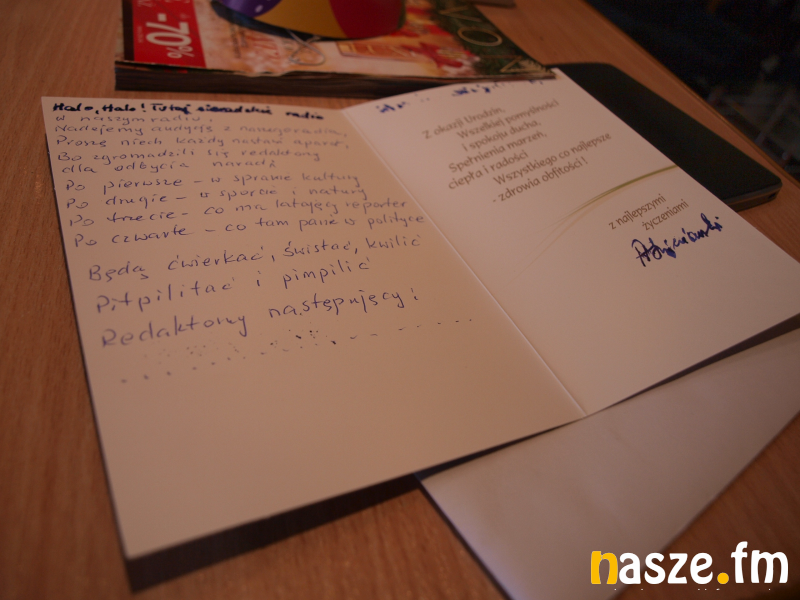 -70%
Halo, Halo! Tutaj sieradzkie radio
w naszym radiu.
Nadajemy audycję z naszego radia,
Proszę niech każdy nastawi aparat,
Bo zgromadzili się redaktorzy
dla odbycia narady
Po pierwsze - w sprawie kultury
Po drugie - w sporcie i natury
Po trzecie - co ma latający reporter
Po czwarte - co tam panie w polityce
Będą ćwierkać, świstać, kwilić
Pitpilitać i pimpilić
Redaktorzy następujący:
Z okazji Urodzin,
Wszelkiej pomyślności
i spokoju ducha,
Spełnienia marzeń,
ciepła i radości
Wszystkiego co najlepsze
- zdrowia obfitości!
z najlepszymi
życzeniami
nasze.fm